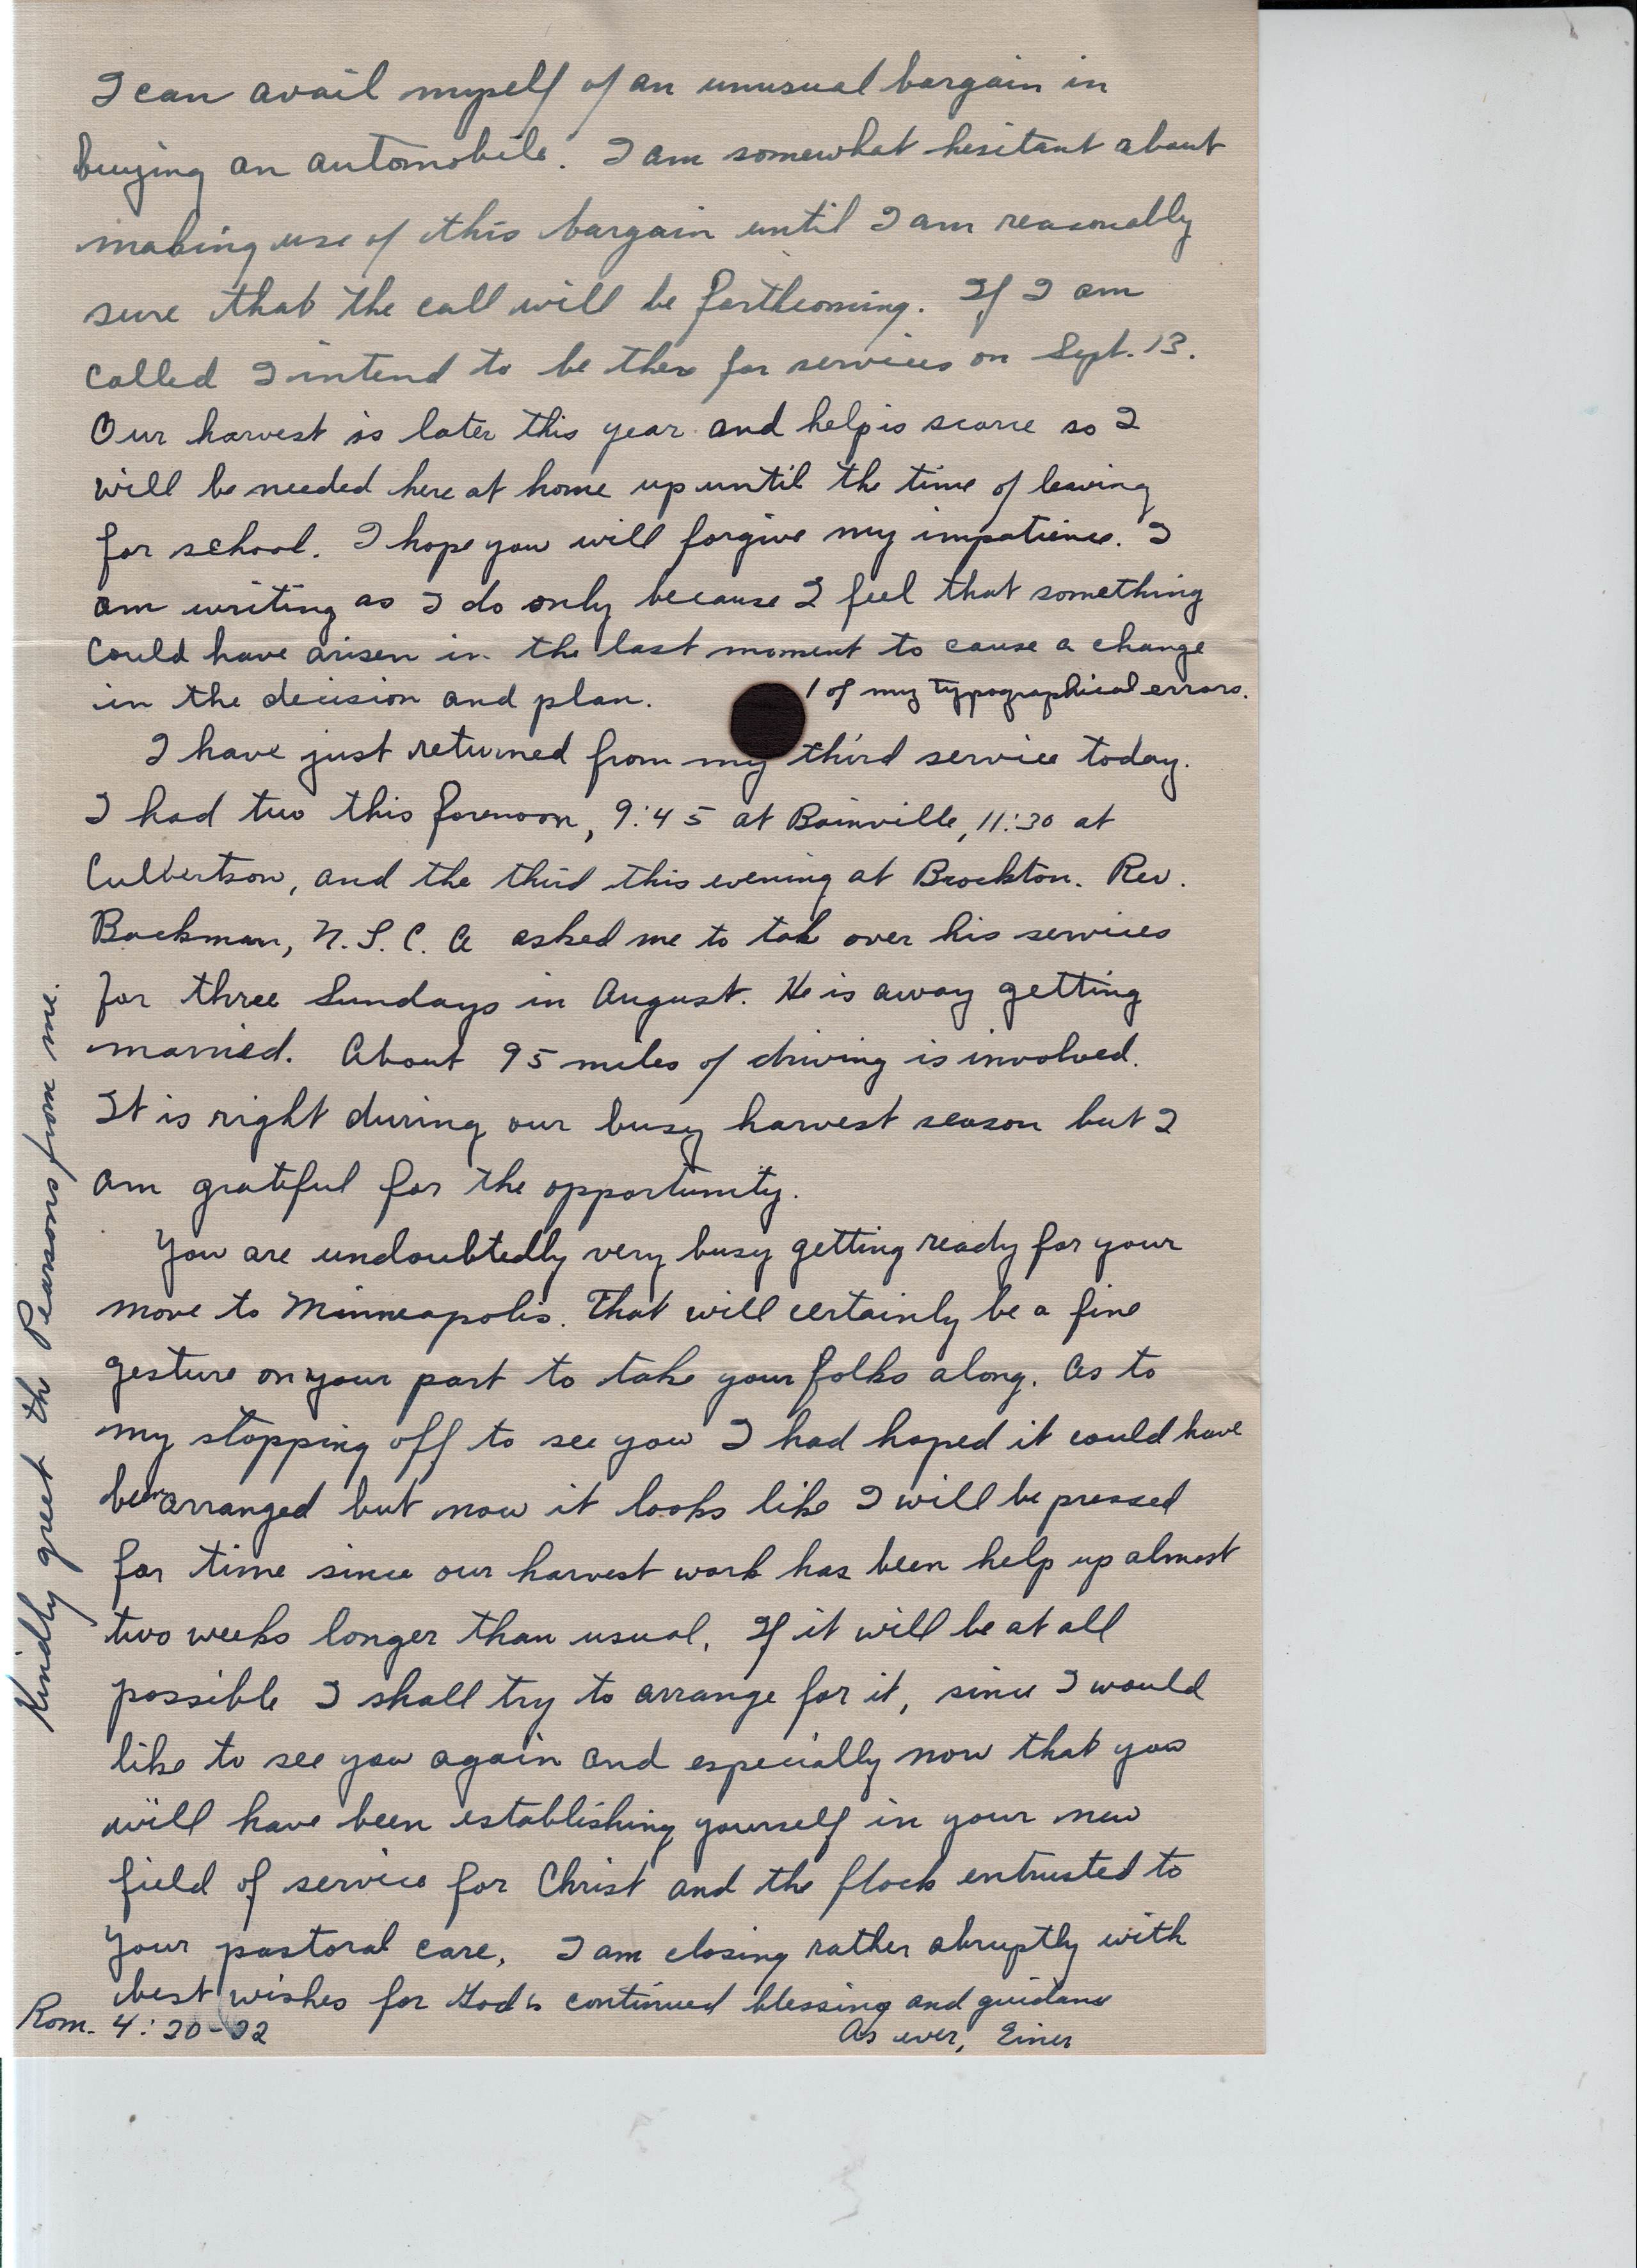 I can avail myself of an unusual bargain in
buying an automobile. I am somewhat hesitant about
making use of this bargain until I am reasonably
sure that the call will be forthcoming. If I am
called I intend to be there for services on Sept. 13.
Our harvest is later this year and help is scarce so I
will be needed here at home up until the time of leaving
for school. I hope you will forgive my impatience. I
am writing as I do only because I feel that something
could have arisen in the last moment to cause a change
in the decision and plan.
1 of my typographical errors.
I have just returned from my third service today.
I had two this forenoon, 9:45 at Bainville, 11:30 at
Culbertson, and the third this evening at Brockton. Rev.
Backman, N.L.C.A asked me to take over his services
for three Sundays in August. He is away getting
married. About 95 miles of driving is involved.
It is right during our busy harvest season but I
am grateful for the opportunity.
You are undoubtedly very busy getting ready for your
move to Minneapolis. That will certainly be a fine
gesture on your part to take your folks along. As to
my stopping off to see you I had hoped it could have
been arranged but now it looks like I will be pressed
for time since our harvest work has been help up almost
two weeks longer than usual. If it will be at all
possible I shall try to arrange for it, since I would
like to see you again and especially now that you
will have been establishing yourself in your new
field of service for Christ and the flock entrusted to
your pastoral care. I am closing rather abruptly with
best wishes for God's continued blessing and guidance
As ever, Einer
Rom. 4:20-22
Kindly greet the Pearsons from me.